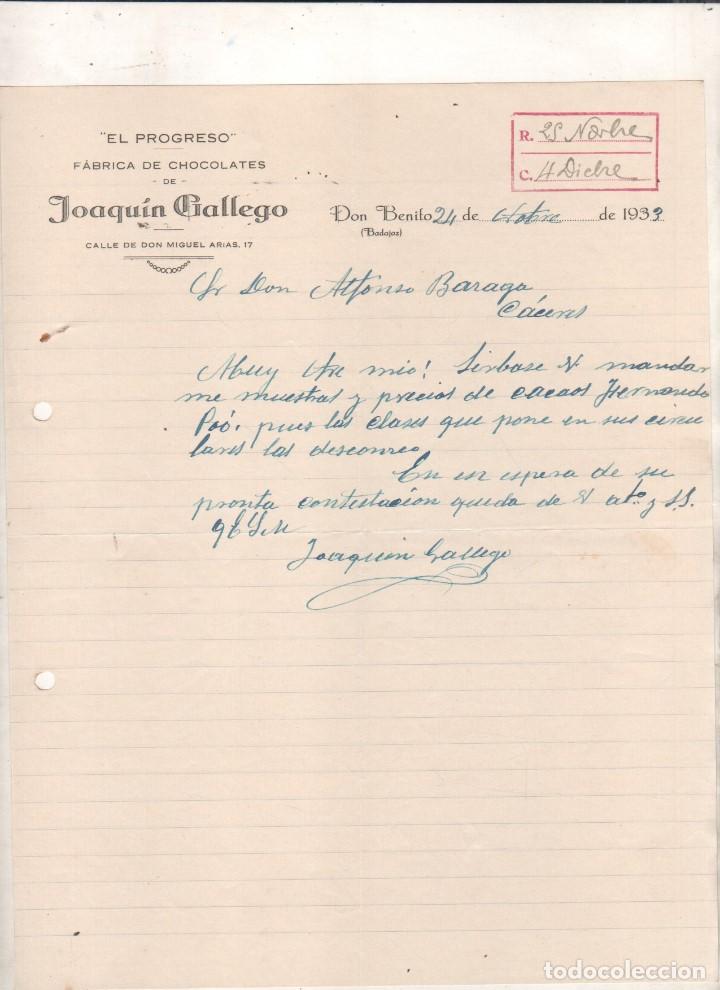 "EL PROGRESO"
FÁBRICA DE CHOCOLATES
- DE -
Joaquín Gallego
CALLE DE DON MIGUEL ARIAS, 17
R. 25 Novbre
C. 4 Dicbre
Don Benito 24 de de 1933
(Badajoz)
Sr Don Alfonso Baraga
Cáceres
Muy Sre mio! Sirbase V mandar
me muestras y precios de cacaos Fernando
Poó. pues las clases que pone en sus circu
lares las desconozco
En en espera de su
pronta contestacion queda de V ato. y S.S.
q E S M
Joaquin Gallego
todocoleccion